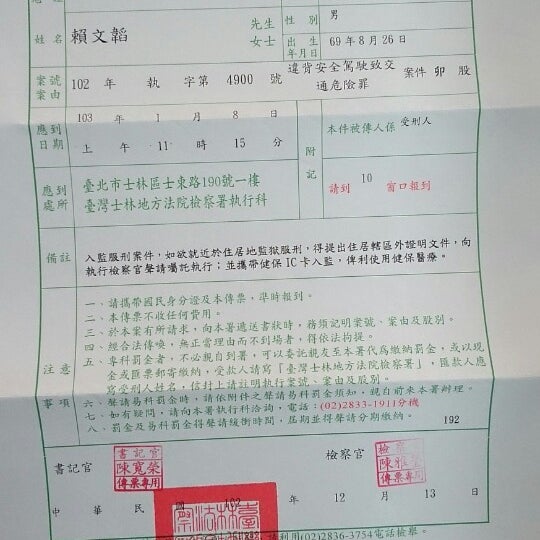 姓名 賴文韜 先生 女士 性別 男
出生年月日 69年8月26日
案號 案由 102 年 執 字第 4900 號 違背安全駕駛致交通危險罪 案件 卯 股
應到日期 103 年 1 月 8 日
上 午 11 時 15 分
附記 本件被傳人係 受刑人
請到 10 窗口報到
應到處所 臺北市士林區士東路190號一樓
臺灣士林地方法院檢察署執行科
備註 入監服刑案件,如欲就近於住居地監獄服刑,得提出住居轄區外證明文件,向
執行檢察官聲請囑託執行;並攜帶健保IC卡入監,俾利使用健保醫療。
注意事項
一、請攜帶國民身分證及本傳票,準時報到。
二、本傳票不收任何費用。
三、於本案有所請求,向本署遞送書狀時,務須記明案號、案由及股別。
四、經合法傳喚,無正當理由而不到場者,得依法拘提。
五、專科罰金者,不必親自到署,可以委託親友至本署代為繳納罰金,或以現
金或匯票郵寄繳納,受款人請寫「臺灣士林地方法院檢察署」,匯款人應
寫受刑人姓名,信封上請註明執行案號、案由及股別。
六、聲請易科罰金時,請依附件之聲請易科罰金須知,親自前來本署辦理。
七、如有疑問,請向本署執行科洽詢,電話:(02)2833-1911分機
192
八、罰金及易科罰金得聲請緩衝時間,屆期並得聲請分期繳納。
書記官 書記官 陳寬榮 傳票專用
檢察官 檢察 陳雅 傳票專用
中 華 民 國 102 年 12 月 13 日
請利用(02)2836-3754電話檢舉。